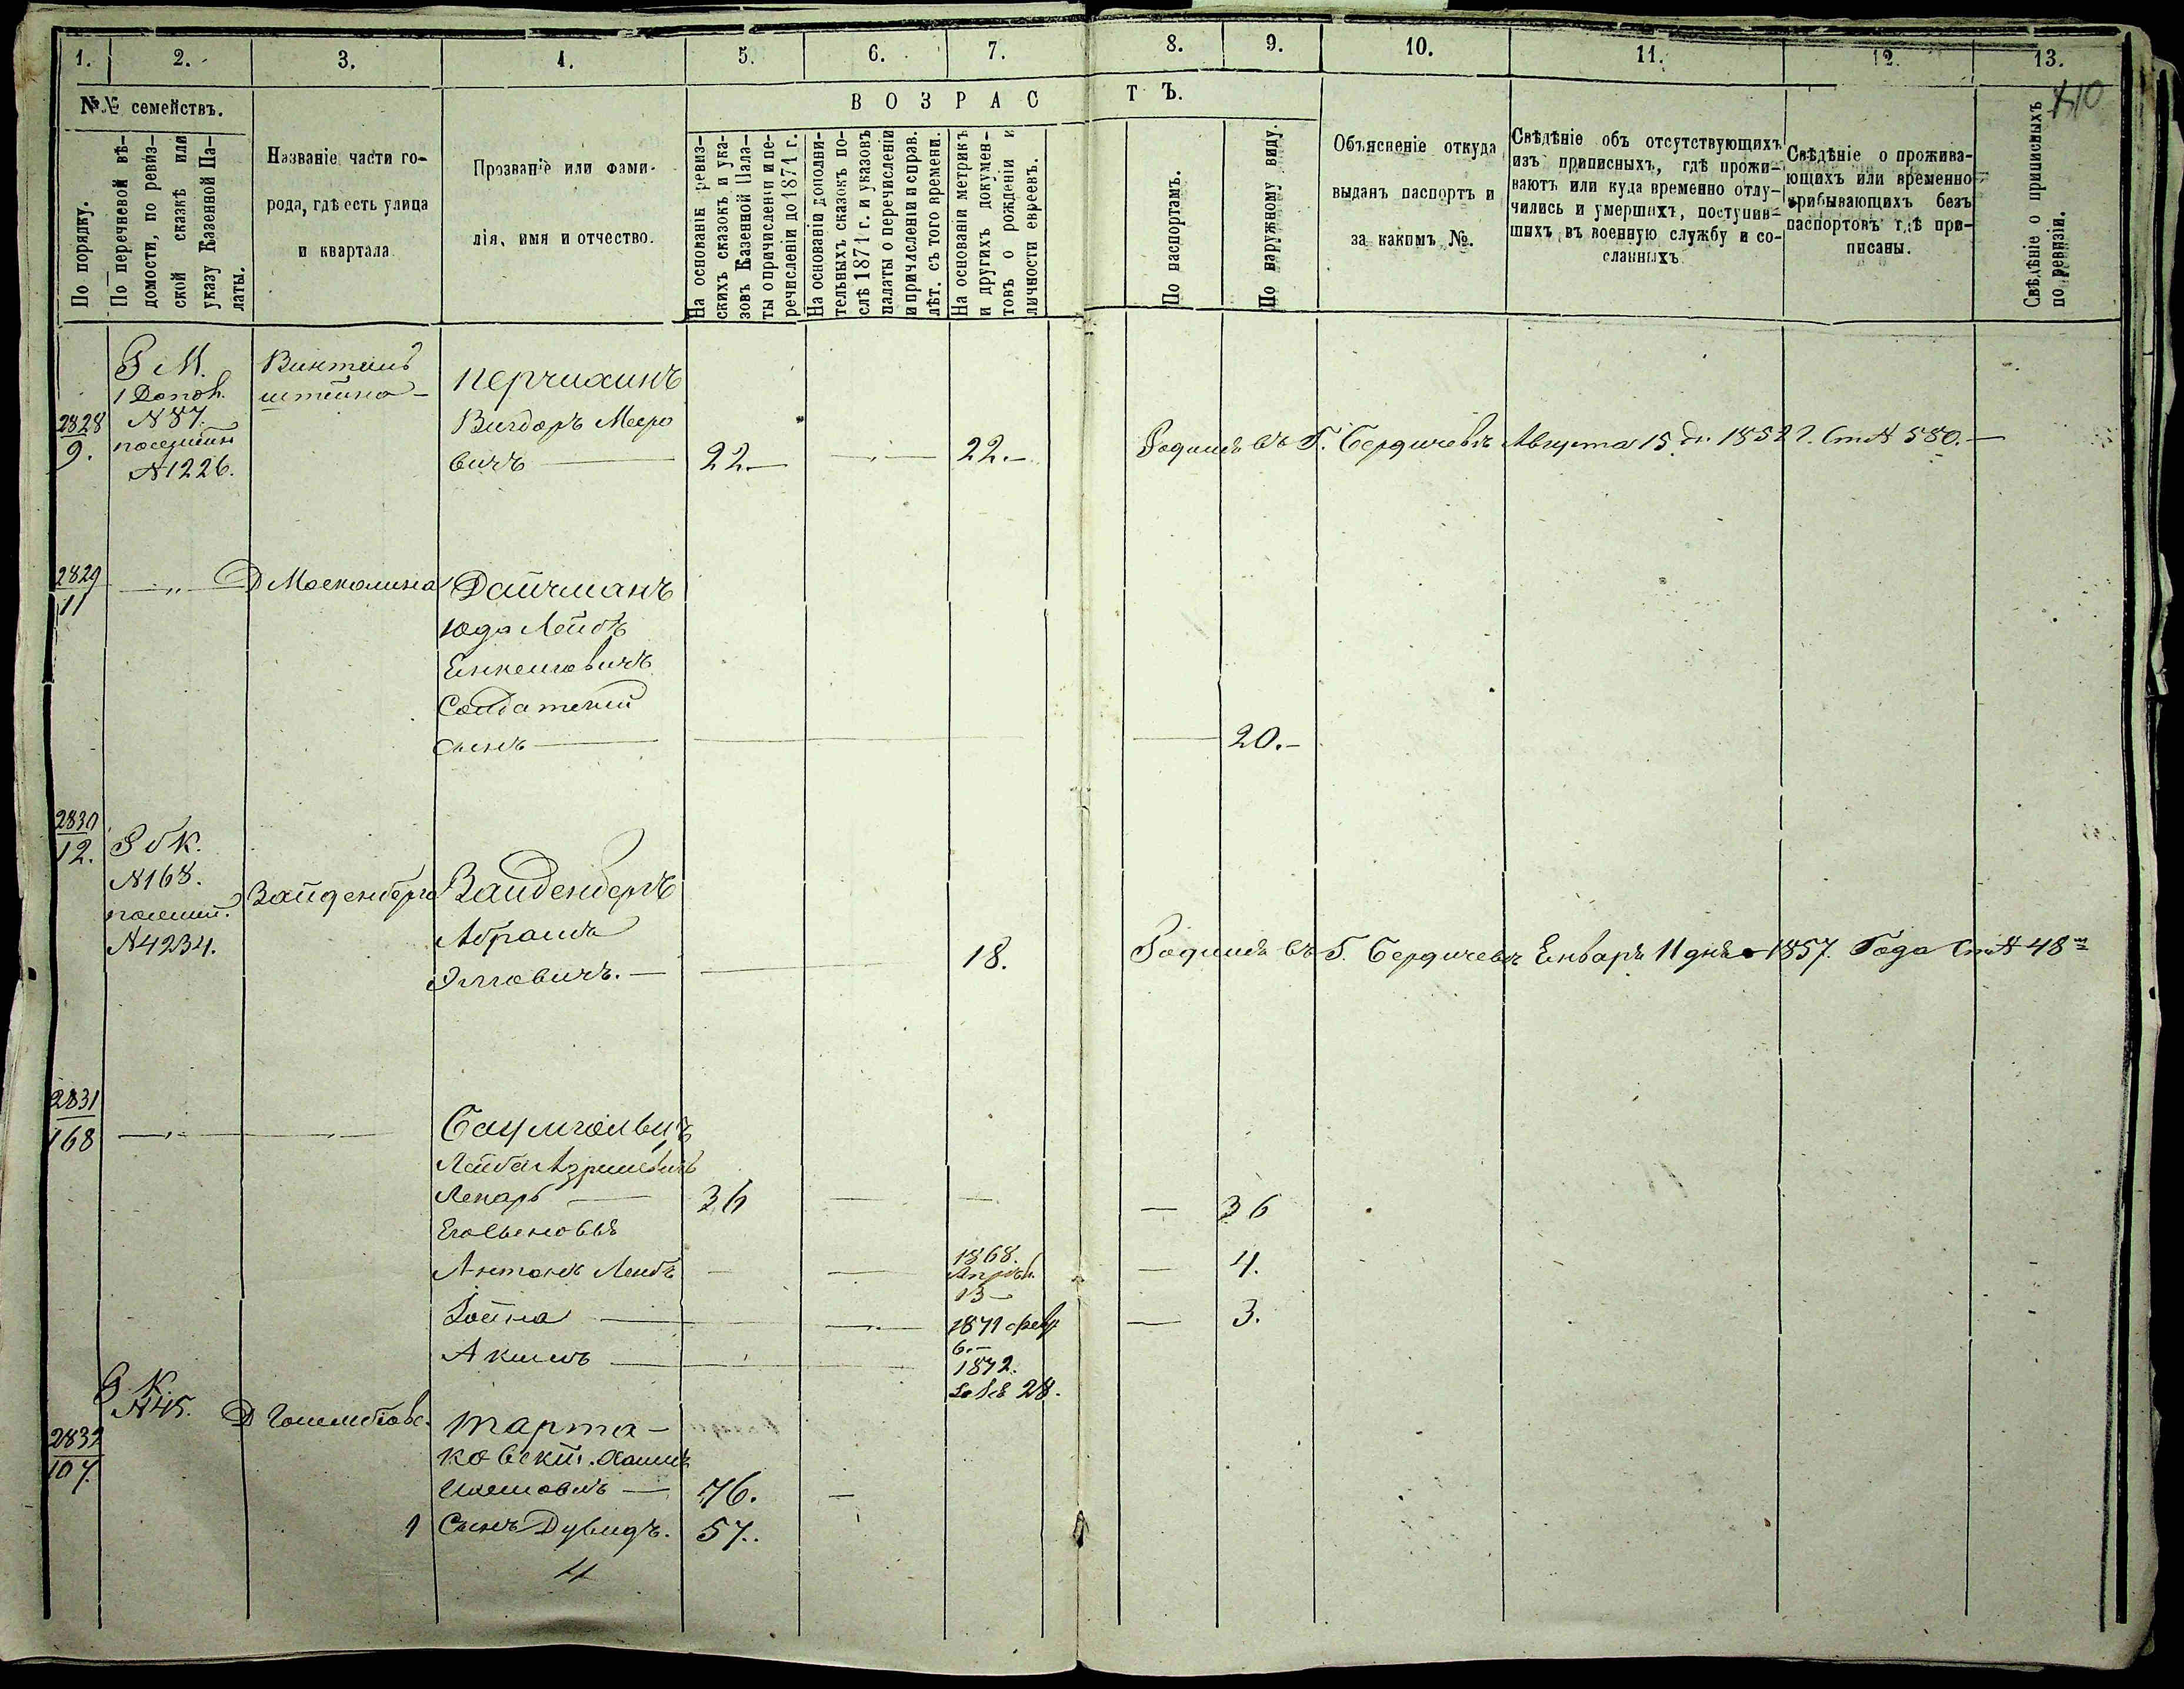 1.
2.
3.
4.
5.
6.
7.
8.
9.
10.
11.
12.
13.
410
№№ семействъ.
ВОЗРАСТЪ.
По порядку.
По перечневой вѣ-
домости, по ревиз-
ской сказкѣ или
указу Казенной Па-
латы.
Названіе части го-
рода, гдѣ есть улица
и квартала
Прозваніе или фами-
лія, имя и отчество.
На основаніи ревиз-
скихъ сказокъ и ука-
зовъ Казенной Пала-
ты о причисленіи и пе-
речисленіи до 1871 г.
На основаніи дополни-
тельныхъ сказокъ по-
слѣ 1871 г. и указовъ
палаты о перечисленіи
и причисленіи и справ.
лѣт. съ того времени.
На основаніи метрикъ
и другихъ докумен-
товъ о рожденіи и
личности евреевъ.
По паспортамъ.
По наружному виду.
Объясненіе откуда
выданъ паспортъ и
за какимъ №.
Свѣдѣніе объ отсутствующихъ
изъ приписныхъ, гдѣ прожи-
ваютъ или куда временно отлу-
чились и умершихъ, поступив-
шихъ въ военную службу и со-
сланныхъ
Свѣдѣніе о прожива-
ющихъ или временно
прибывающихъ безъ
паспортовъ гдѣ при-
писаны.
Свѣдѣніе о приписныхъ
по ревизіи.
2828
9.
М.
1 Допол.
№87.
№1226.
штейна
Перчихинъ
Вигдоръ Меро
вичъ
22.
22.
Родился въ Г. Бердичевѣ Августа 15 дн. 1852 г. Ст № 580.
2829
11
Д Москалина
Дайчманъ
Юда Лейбъ
Солдатскій
сынъ
20.
2830
12.
№168.
№4234.
Зайденберга
Зайденбергъ
Абрамъ
Элловичъ.
18.
Родился въ Г. Бердичевѣ Енваръ 11 дня 1857. Года Ст № 48
2831
168
Лекарь
36
36
Его сыновья
Антонъ Лейбъ
1868.
Апрѣл.
13
4.
1871 февр
6.
3.
Акимъ
1872.
28.
К.
№45.
2832
107.
Тарта-
ковскій. Хаимъ
76.
1 Сынъ Дувидъ.
57.
4